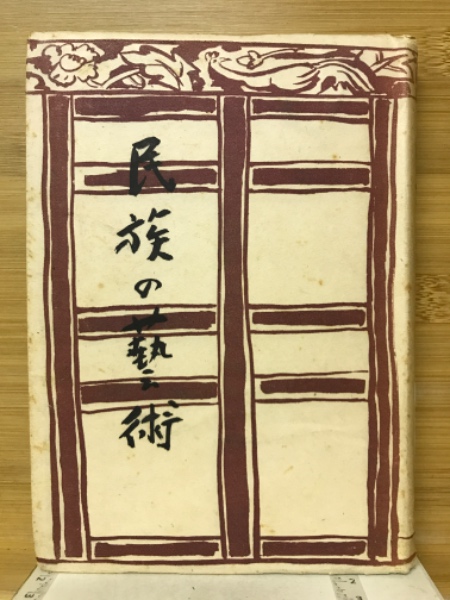 民族の藝術